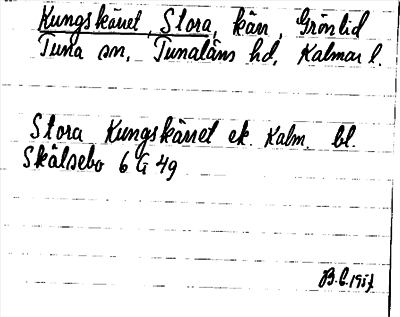 Kungskärret, Stora, kärr, Grönlid
Tuna sn, Tunaläns hd, Kalmar l.
Stora Kungskärret ek. Kalm. bl.
Skälsebo 6 G 49
B.C. 1957